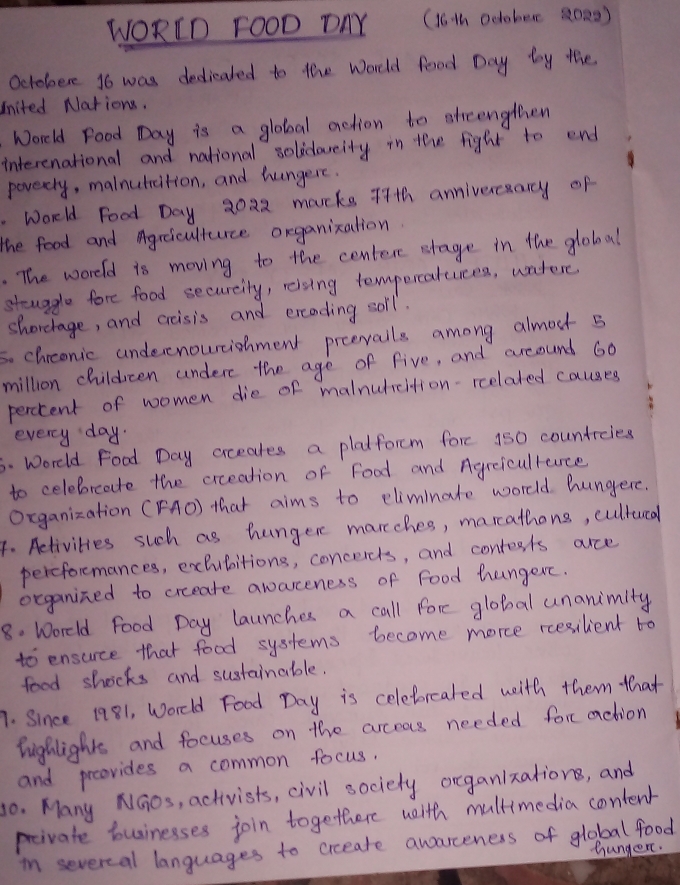 WORLD FOOD DAY (16th October 2022)
October 16 was dedicated to the World Food Day by the
United Nations.
. World Food Day is a global action to strengthen
international and national solidarity in the fight to end
poverty, malnutrition, and hunger.
. World Food Day 2022 marks 77th anniversary of
the food and Agriculture organization.
. The world is moving to the center stage in the global
struggle for food security, rising temperatures, water
shortage, and crisis and eroding soil.
5. Chronic undernourishment prevails among almost 5
million children under the age of five, and around 60
percent of women die of malnutrition-related causes
every day.
6. World Food Day creates a platform for 150 countries
to celebrate the creation of Food and Agriculture
Organization (FAO) that aims to eliminate world hunger.
7. Activities such as hunger marches, marathons, cultural
performances, exhibitions, concerts, and contests are
organized to create awareness of food hunger.
8. World Food Day launches a call for global unanimity
to ensure that food systems become more resilient to
food shocks and sustainable.
9. Since 1981, World Food Day is celebrated with them that
highlights and focuses on the areas needed for action
and provides a common focus.
10. Many NGOs, activists, civil society organizations, and
private businesses join together with multimedia content
in several languages to create awareness of global food
hunger.